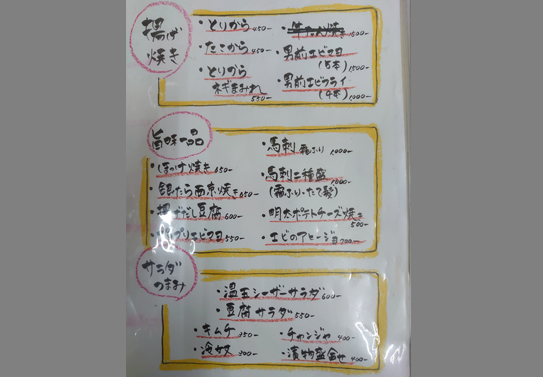 揚げ
焼き
・とりから 450-
・たこから 450-
・とりから
ネギまみれ
550-
・牛たん焼き 1500-
・男前エビマヨ
(5本) 1500-
・男前エビフライ
(4本) 1000-
旨味一品
・ほっけ焼き 650-
・銀だら西京焼き 650-
・揚げだし豆腐 600-
プリエビマヨ 550-
・馬刺 霜ふり 1000-
・馬刺二種盛
(霜ふり・たて髪)
・明太ポテトチーズ焼き
500-
・エビのアヒージョ 700-
サラダ
つまみ
・温玉シーザーサラダ 600-
・豆腐サラダ 550-
・キムチ 350-
・チャンジャ 400-
・冷奴 300-
・漬物盛合せ 400-